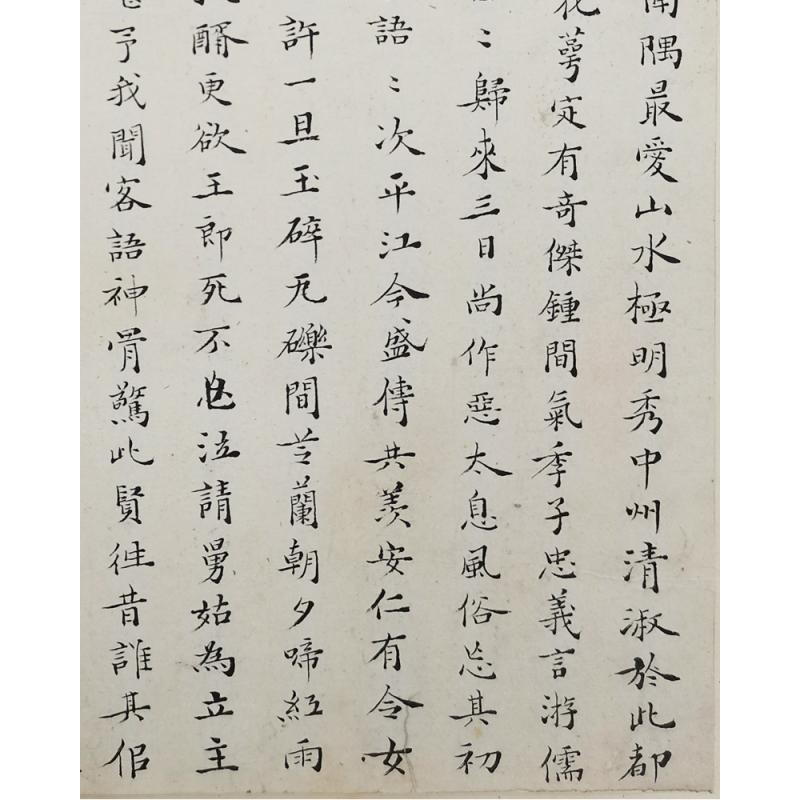 南隅最愛山水極明秀中州清淑於此都
花萼定有奇傑鍾間氣季子忠義言游儒
〻歸來三日尚作惡太息風俗忘其初
語〻次平江今盛傳共羨安仁有令女
許一旦玉碎瓦礫間芝蘭朝夕啼紅雨
醑更欲王郎死不忘泣請舅姑為立主
予我聞客語神骨驚此賢往昔誰其侣